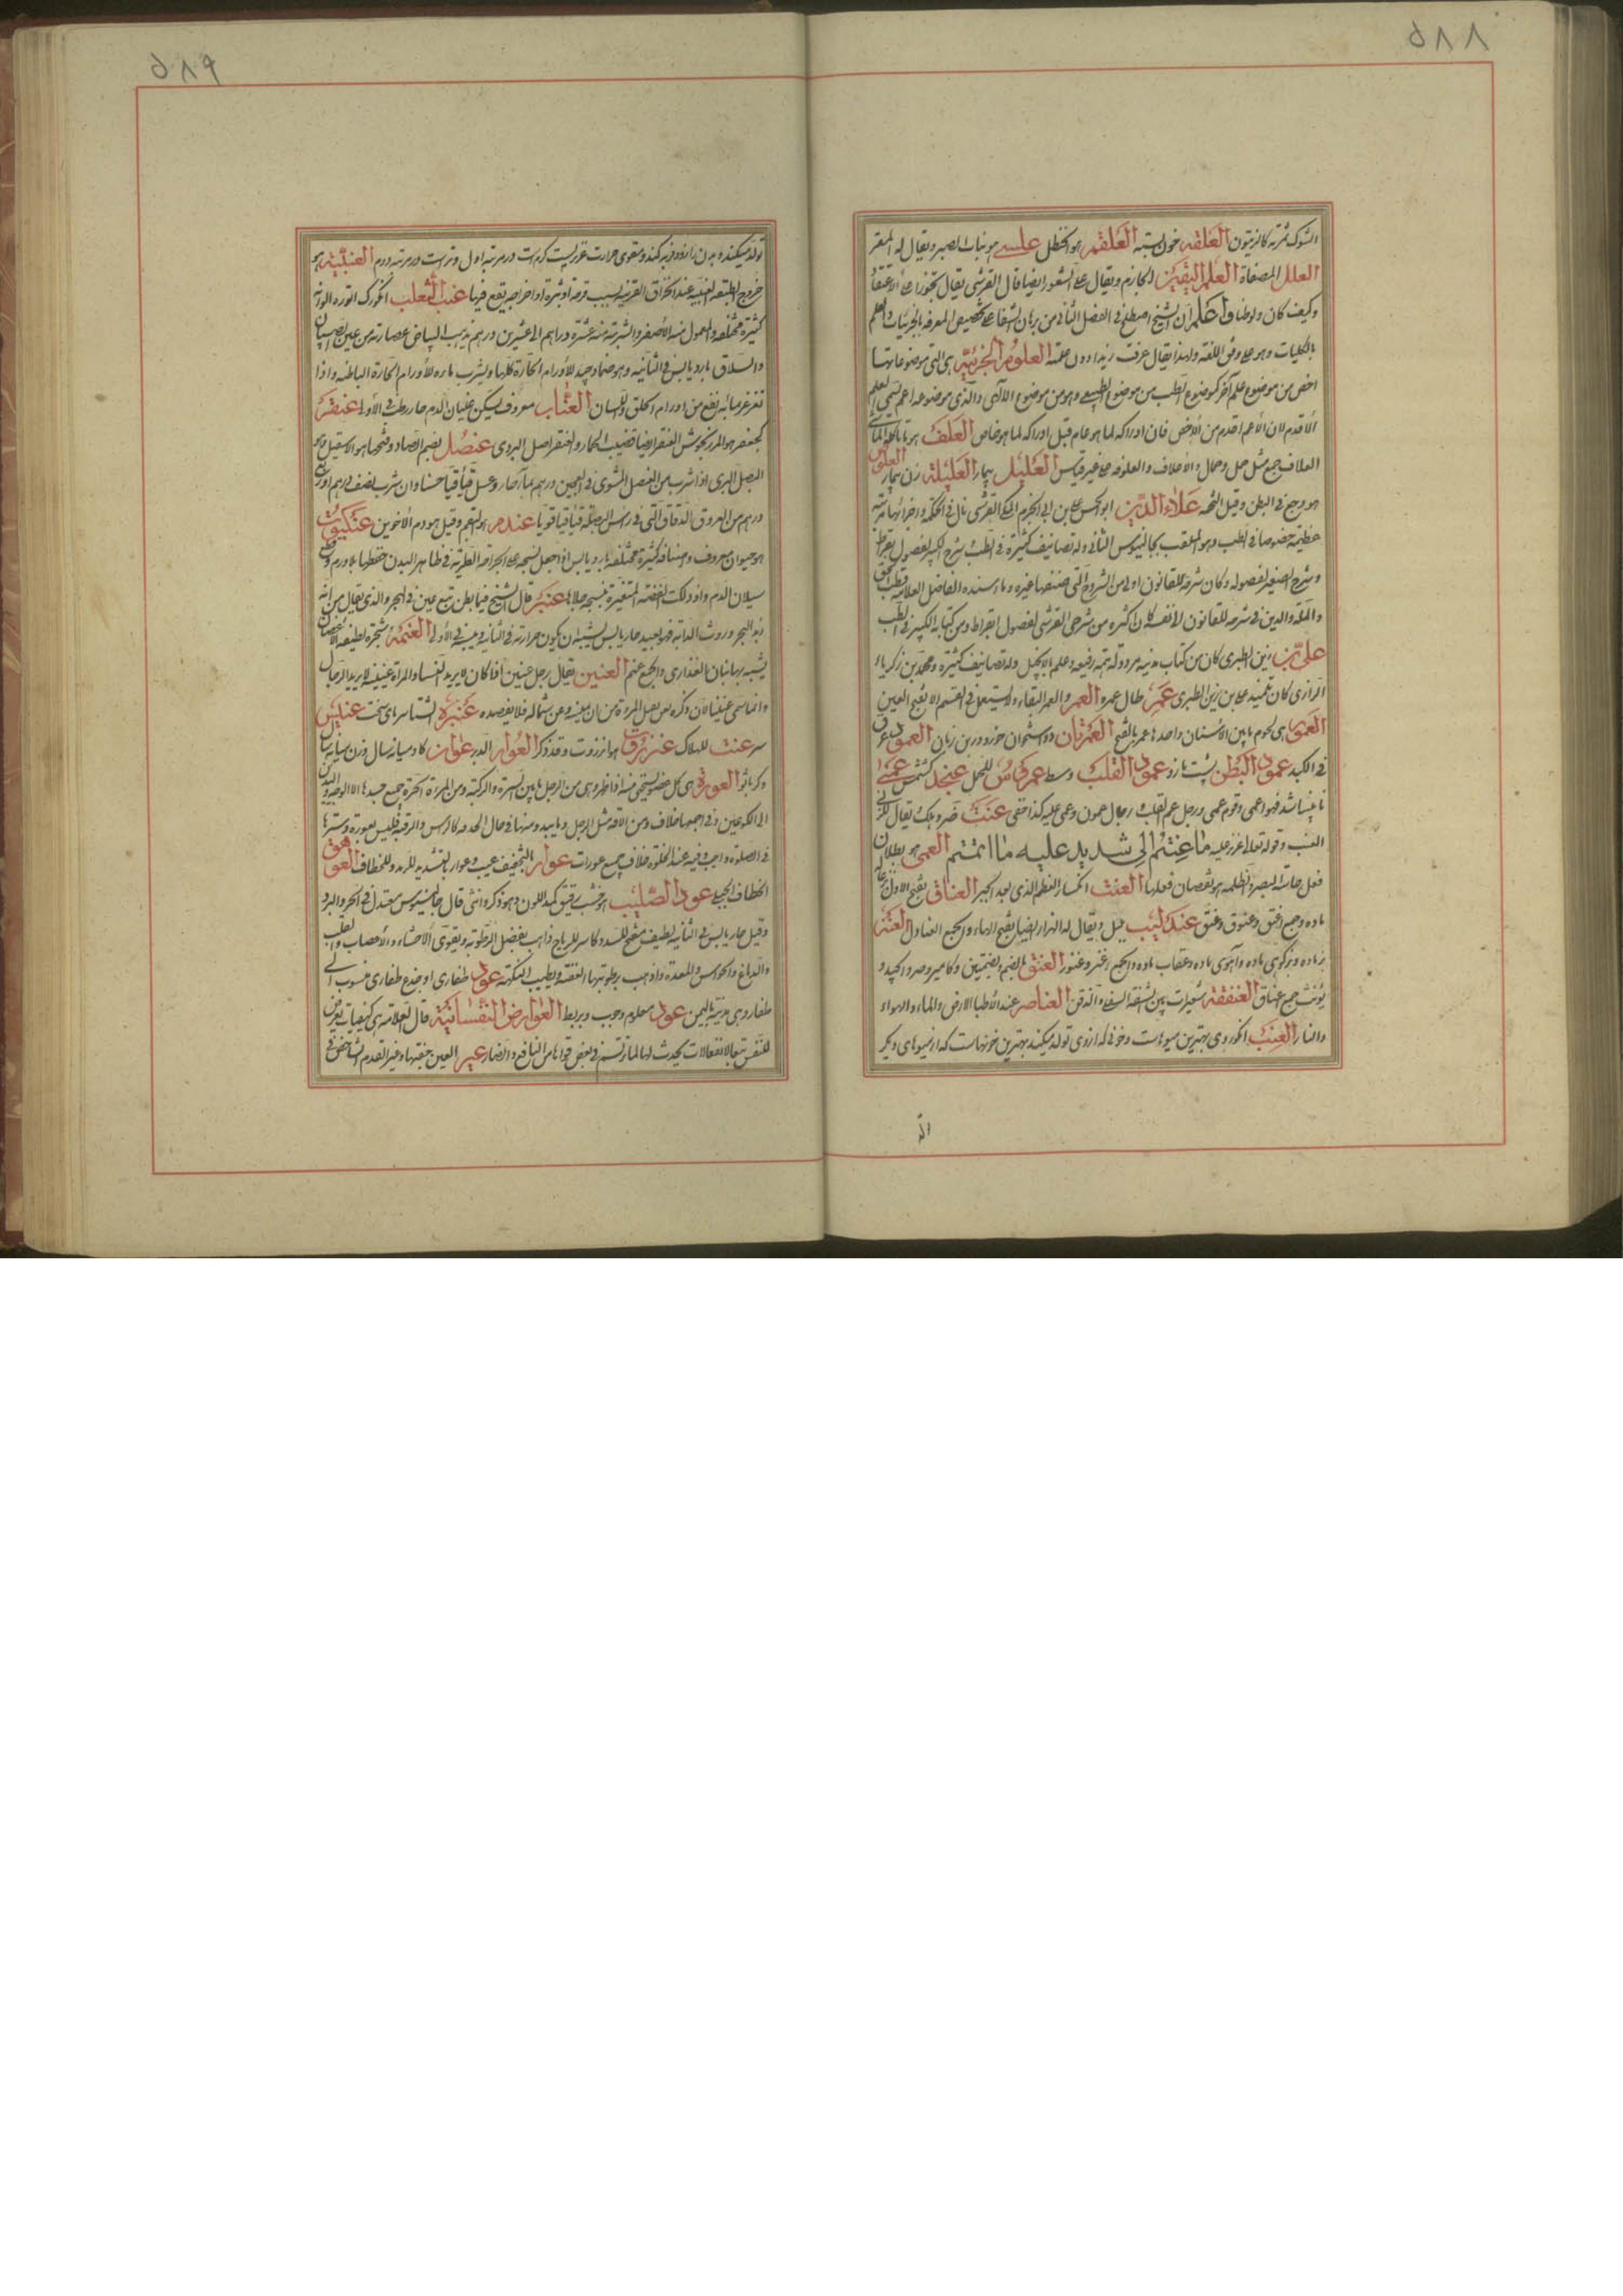 ٥٨٨
الشوك ثمرته كالزيتون العلقة خون بسته العلقم هو الحنظل علسى هو نبات الصبر ويقال له المقر
العلل المصفاة العلم اليقين الجازم ويقال على الشعور ايضا قال القرشى يقال تجوزا على الاعتقاد
وكيف كان ولو ظنا و اعلم ان الشيخ اصطلح فى الفصل الثانى من برهان الشفا على تخصيص المعرفة بالجزئيات والعلم
بالكليات وهو على وفق اللغة ولهذا يقال عرفت زيدا دون علمته العلوم الجزئية هى التى موضوعاتها
اخص من موضوع علم آخر كموضوع الطب من موضوع الطبيعى وهو من موضوع الالهى والذى موضوعه اعم يسمى العلم
الاقدم لان الاعم اقدم من الاخص فان ادراكه لما هو عام قبل ادراكه لما هو خاص العلف هو ما ياكله الماشى
العلاف جمع مثل جمل وجمال والاعلاف والعلوفة على غير قياس العليل بيمار العليلة زن بيمار العلوص
هو وجع فى البطن وقيل التخمة علاء الدين ابو الحسن على بن ابى الحزم المكى القرشى نال فى الحكمة واجزائها مرتبة
عظيمة خصوصا فى الطب وهو الملقب بجالينوس الثانى وله تصانيف كثيرة فى الطب شرح الكبير لفصول بقراط
وشرح الصغير لفصوله وكان شرحه للقانون اولى من الشروح التى صنفها غيره وما اسنده الفاضل العلامة قطب الحق
والملة والدين فى شرحه للقانون لانفسه كان اكثره من شرحى القرشى لفصول ابقراط ومن كتابه الكبير فى الطب
على بن زين الطبرى كان من كتاب مدينة مرو وله همة رفيعة وعلم بالانجيل وله تصانيف كثيرة ومحمد بن زكرياء
الرازى كان تلميذ على بن زين الطبرى عمر طال عمره العمر والعمر البقاء ولا يستعمل فى القسم الا بفتح العين
العمور هى لحوم ما بين الاسنان واحدها عمر بالفتح العمرتان دو استخوان خورد در بن زبان العمود عرق
فى الكبد عمود البطن پشت مازو عمود القلب وسط عمروس للحمل عنجد كشمش عمى
نابينا شد فهو اعمى وقوم عمى ورجل عمى القلب و رجال عمون وعمى عليه كذا اخفى عنت ضر وهلك يقال
العنب وقوله تعالى عزيز عليه ما عنتم اى شديد عليه ما اثمتم العمى هو بطلان
فعل حاسة البصر والظلمة هو نقصان فعلها العنت انكسار العظم الذى بعد الجبر العناق بفتح الاول بزغاله
ماده وجمع اعنق وعنوق وعنق عندليب بلبل ويقال له الهزار ايضا بفتح الهاء والجمع العنادل العنز
بز ماده وبز كوهى ماده وآهوى ماده وعقاب ماده والجمع اعنز وعنوز العنق بالضم وبضمتين وكامير وصرد الجيد و
يؤنث جمع اعناق العنفقة شعيرات بين الشفة السفلى والذقن العناصر عند الاطبا الارض والماء والهواء
والنار العنب انكور وى بهترين ميوهاست وخونى كه از وى تولد ميكند بهترين خونهاست كه از ميوهاى ديكر
٥٨٩
تولد ميكند و بدن را زود فربه كند ومقوى حرارت غريزيست كرمست در مرتبه اول وترست در مرتبه دوم العنبية هو
خروج الطبقة العنبية عند انخراق القرنية بسبب قرحة او بثرة او جراحة يقع فيها عنب الثعلب انكورك انوره الوانه
كثيرة مختلفة والمعمول منه الاصفر والشربة منه عشرة دراهم الى عشرين درهم يذهب البياض عصارته من عين الصبيان
والسلاق بارد يابس فى الثانية وهو ضماد جيد للاورام الحارة كلها ويشرب ماءه للاورام الحارة الباطنة واذا
تغرغر بمائه نفع من اورام الحلق واللسان العناب معروف يسكن غليان الدم حار رطب فى الاولى عنقر
كجعفر هو المرزنجوش العنقر ايضا قضيب الحمار والعنقر اصل البردى عنصل بضم الصاد وفتحها هو الاسقيل هو
البصل البرى اذا شرب من العنصل المشوى فى العجين درهم بماء حار وعسل قيأ قيأ حسنا وان شرب نصف درهم او ربع
درهم من العروق الدقاق التى فى راس البصلة قيأ قيأ قويا عندم هو البقم وقيل هو دم الاخوين عنكبوت
هو حيوان معروف واصنافه كثيرة مختلفة بارد يابس اذا جعل نسجه على الجراحة الطرية فى ظاهر البدن حفظها بلا ورم وقطع
سيلان الدم واذا دلكت الفضة المتغيرة بنسجه جلاها عنبر قال الشيخ فيما يظن نبع عين فى البحر والذى يقال من انه
زبد البحر وروث الدابة فهو بعيد حار يابس يشبه ان يكون حرارته فى الثانية ويبسه فى الاولى العنمة شجرة لطيفة الاغصان
يشبه بها بنان العذارى والجمع عنم العنين يقال رجل عنين اذا كان لا يريد النساء والمراة عنينة لا يريد الرجال
وانما سمى عنينا لان ذكره يعن لقبل المرءة من عن يمينه وعن شماله فلا يقصده عنبرة الشتا سرماى سخت عنبس
سر عنت للهلاك عنزروت هو انزروت وقد ذكر العوار الدر عوان كاو ميانه سال وزن ميانه سال
وكر بالو العورة هى كل عضو يستحى منه اذا ظهر وهى من الرجل ما بين السرة والركبة ومن المراة الحرة جميع جسدها الا الوجه واليدين
الى الكوعين وفى اخمصها خلاف ومن الامة مثل الرجل وما يبدو منها فى حال الخدمة كالراس والرقبة فليس بعورة وسترها
فى الصلوة واجب وفيه عند الخلوة خلاف جمع عورات عوار بالتخفيف عيب وعوار بالتشديد للرمد وللخطاف العوهق
الخطاف الجبلى عود الصليب هو خشب دقيق كمد اللون وهو ذكر وانثى قال جالينوس معتدل فى الحر والبرد
وقيل حار يابس فى الثانية لطيف مفتح للسدد وكاسر للرياح ذاهب بفضل الرطوبة ويقوى الاحشاء والاعصاب والقلب
والدماغ والحواس والمعدة واذهب برطوبتها العفنة ويطيب النكهة عود ظفارى او جزع ظفارى منسوب الى
ظفار وهى مدينة باليمن عود معلوم وچوب و بربط العوارض النفسانية قال العلامة هى كيفيات يعرض
للنفس تبعا لانفعالات يحدث لها لما ترتسم فى بعض قواها من النافع والضار عير العين جفنها وعير القدم الشاخص فى